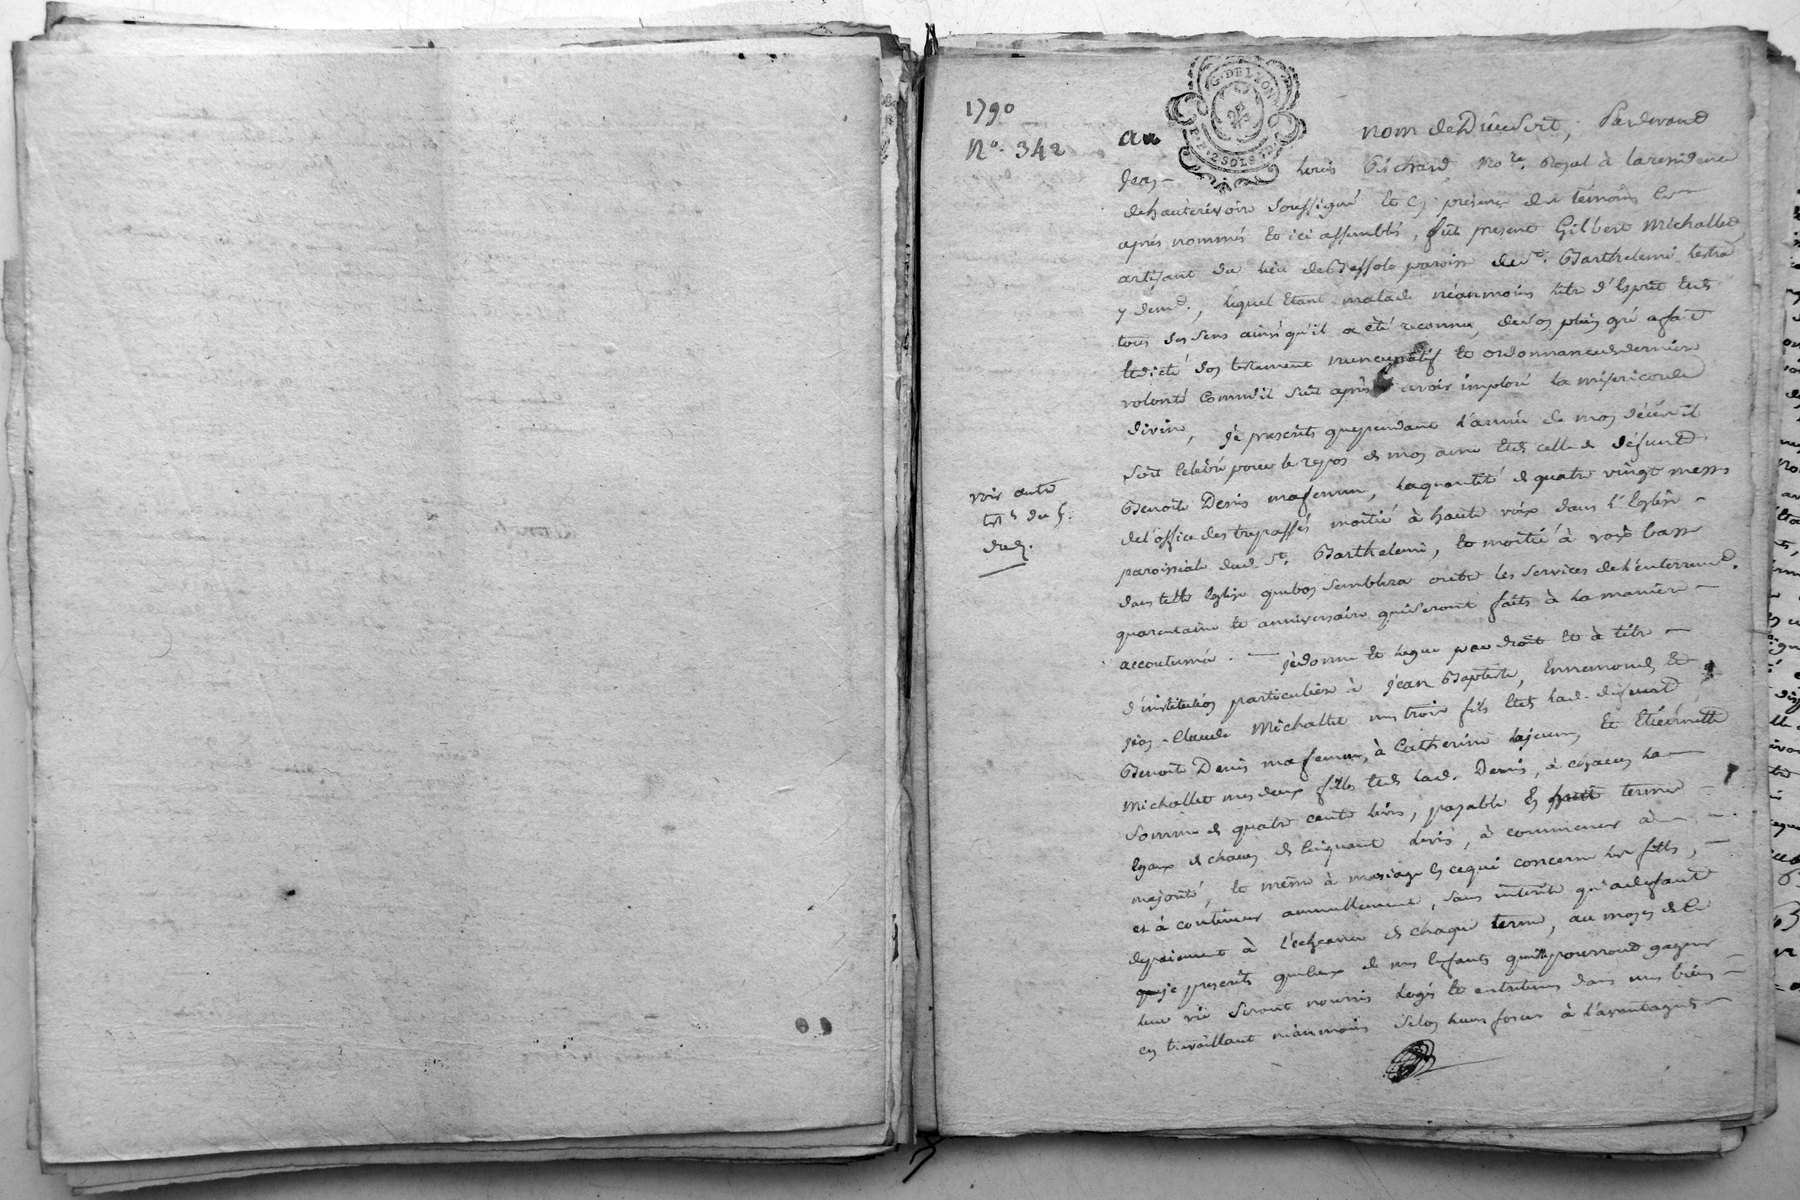 1790
N°. 342
G. DE LYON
2 SOLS
au nom de Dieu soit, Pardevant
Jean Louis Richard No.re Royal à la residence
de hauterivoire soussigné et en présence des témoins cy
après nommés et ici assemblés, fut present Gilbert Michallet
artisant du lieu de Bessole paroisse de St. Barthelemi lestra
y dem.t, lequel etant malade néanmoins libre d'esprit et de
tous ses sens ainsi qu'il a été reconnu, de son plein gré a fait
et dicté son testament nuncupatif et ordonnance de derniere
volonté comme il suit après avoir imploré la misericorde
divine, je prescrits que pendant l'année de mon décès il
soit celebré pour le repos de mon ame et de celle de defunte
Benoite Denis ma femme, la quantité de quatre vingt messes
de l'office des trepassés moitié à haute voix dans l'Eglise
paroissiale dud. St. Barthelemi, et moitié à voix basse
dans telle Eglise que bon semblera outre les services de l'enterrement,
quarentaine et anniversaire qui seront faits à la manière
accoutumée. je donne et legue par droit et à titre
d'institution particuliere à Jean Baptiste, Ennemond, et
Jean-Claude Michallet mes trois fils et de lad. defunte
Benoite Denis ma femme, à Catherine la jeune, et Etiennette
Michallet mes deux filles et de lad. Denis, à chacun la
somme de quatre cents livres, payable en huit termes
egaux de chacun de cinquante livres, à commencer à
majorité, et même à mariage en ce qui concerne les filles,
et à continuer annuellement, sans interets qu'au defaut
de paiement à l'echeance de chaque terme, au moyen de ce
je prescrits que ceux de mes enfants qui ne pourront gagner
leur vie seront nourris logés et entretenus dans mes biens
en travaillant néanmoins selon leurs forces à l'avantage
voir autre
test.t du f.
dud.